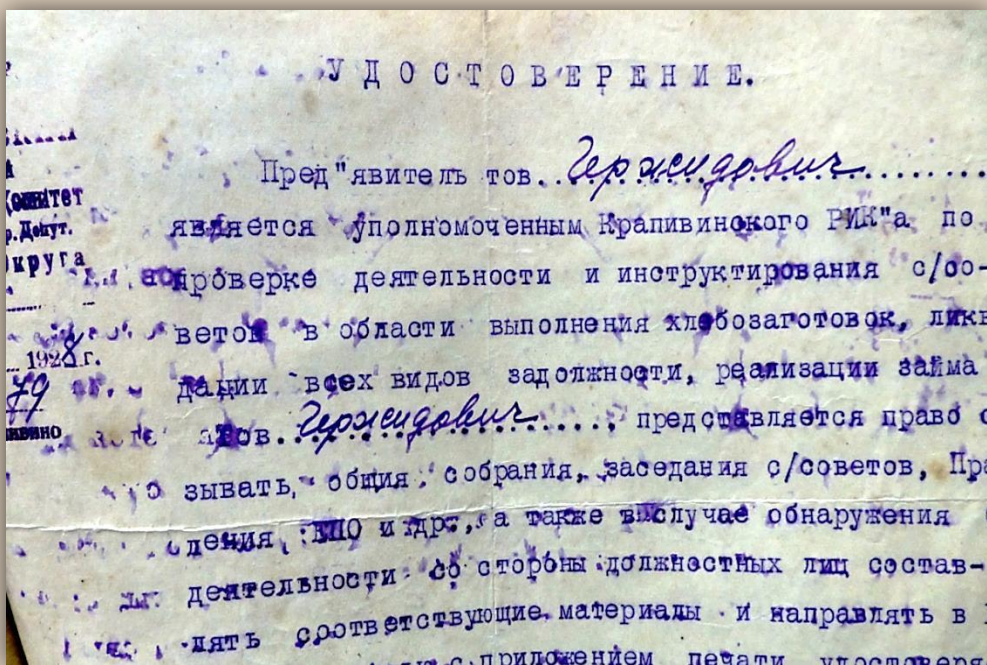 УДОСТОВЕРЕНИЕ.
Комитет
р.Депут.
округа
1928 г.
79
Пред"явитель тов. Гержидович
является уполномоченным Крапивинского РИК"а по
проверке деятельности и инструктирования с/со-
ветов в области выполнения хлебозаготовок, ликв
дации всех видов задолжности, реализации займа
Тов. Гержидович представляется право с
зывать, общия собрания, заседания с/советов, Пра
ления ЕПО и др., а также в случае обнаружения
деятельности со стороны должностных лиц состав-
лять соответствующие материалы и направлять в
с приложением печати удостоверя